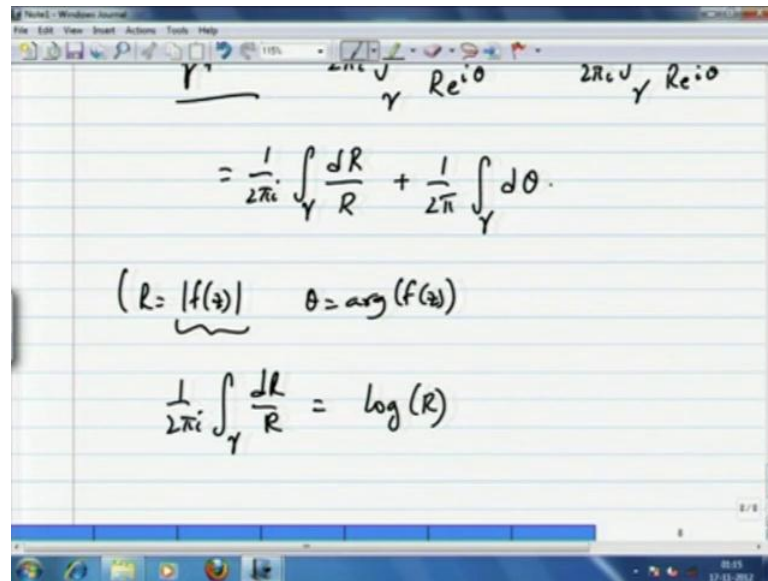 Note1 - Windows Journal
File Edit View Insert Actions Tools Help
115%
γ Re^{iθ} 2πi ∫_γ Re^{iθ}
= 1/2πi ∫_γ dR/R + 1/2π ∫_γ dθ.
(R = |f(z)| θ = arg(f(z))
1/2πi ∫_γ dR/R = log(R)
8/8
8
01:15
17-11-2012